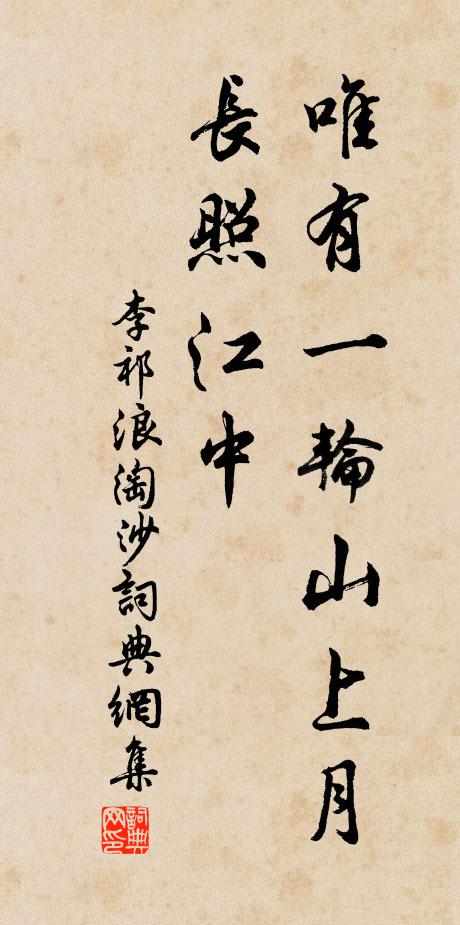 唯有一輪山上月
長照江中
李祁浪淘沙詞典網集
詞典網印